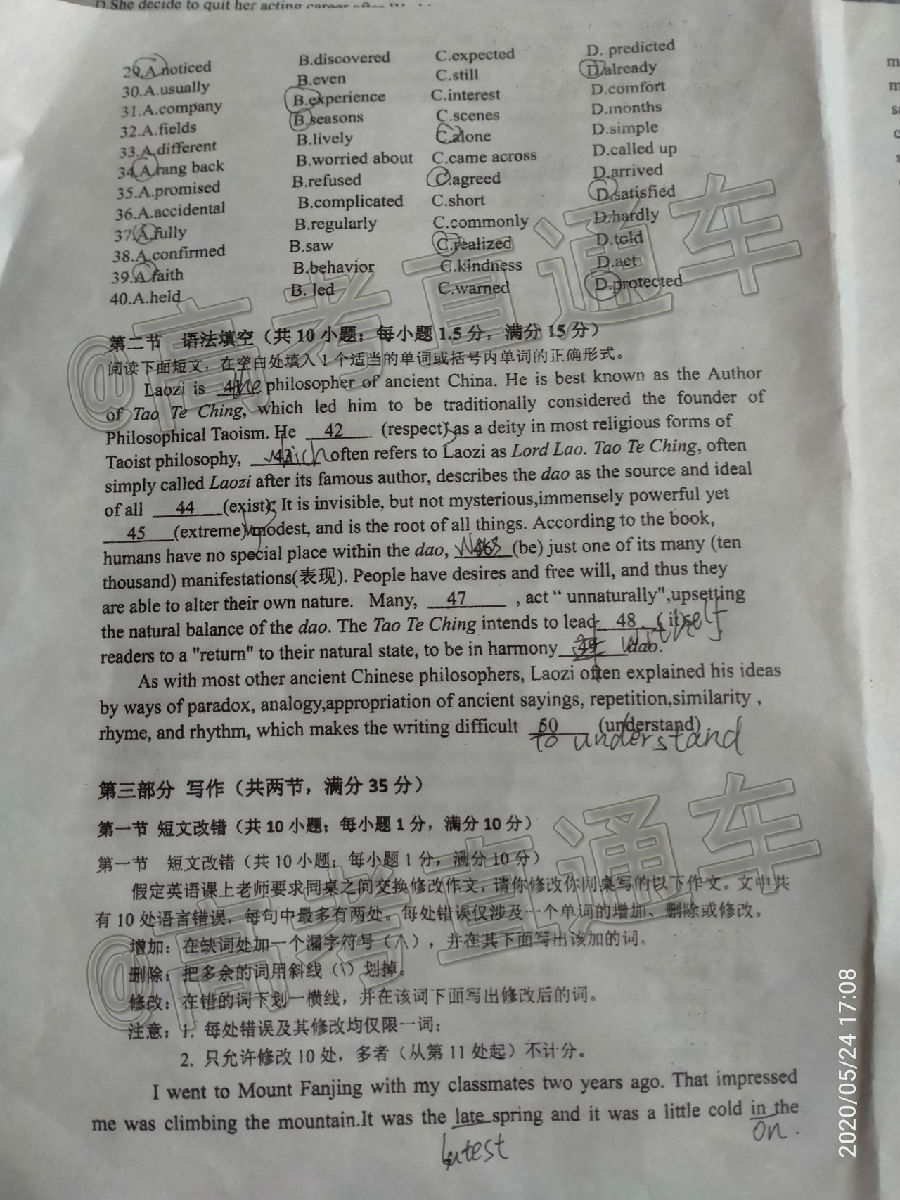 D.She decide to quit her acting career
29.A.noticed B.discovered C.expected D. predicted
30.A.usually B.even C.still D.already
31.A.company B.experience C.interest D.comfort
32.A.fields B.seasons C.scenes D.months
33.A.different B.lively C.alone D.simple
34.A.rang back B.worried about C.came across D.called up
35.A.promised B.refused C.agreed D.arrived
36.A.accidental B.complicated C.short D.satisfied
37.A.fully B.regularly C.commonly D.hardly
38.A.confirmed B.saw C.realized D.told
39.A.faith B.behavior C.kindness D.act
40.A.held B. led C.warned D.protected
第二节 语法填空（共 10 小题；每小题 1.5 分，满分 15 分）
阅读下面短文，在空白处填入 1 个适当的单词或括号内单词的正确形式。
Laozi is 41 the philosopher of ancient China. He is best known as the Author
of Tao Te Ching, which led him to be traditionally considered the founder of
Philosophical Taoism. He 42 (respect) as a deity in most religious forms of
Taoist philosophy, 43 which often refers to Laozi as Lord Lao. Tao Te Ching, often
simply called Laozi after its famous author, describes the dao as the source and ideal
of all 44 (exist): It is invisible, but not mysterious,immensely powerful yet
45 (extreme) modest, and is the root of all things. According to the book,
humans have no special place within the dao, 46 (be) just one of its many (ten
thousand) manifestations(表现). People have desires and free will, and thus they
are able to alter their own nature. Many, 47 , act “ unnaturally",upsetting
the natural balance of the dao. The Tao Te Ching intends to lead 48 (it)
itself
readers to a "return" to their natural state, to be in harmony 49 dao.
As with most other ancient Chinese philosophers, Laozi often explained his ideas
by ways of paradox, analogy,appropriation of ancient sayings, repetition,similarity ,
rhyme, and rhythm, which makes the writing difficult 50 (understand)
to understand
第三部分 写作（共两节，满分 35 分）
第一节 短文改错（共 10 小题；每小题 1 分，满分 10 分）
第一节 短文改错（共 10 小题；每小题 1 分，满分 10 分）
假定英语课上老师要求同桌之间交换修改作文，请你修改你同桌写的以下作文。文中共
有 10 处语言错误，每句中最多有两处。每处错误仅涉及一个单词的增加、删除或修改。
增加：在缺词处加一个漏字符号（∧），并在其下面写出该加的词。
删除：把多余的词用斜线（\）划掉。
修改：在错的词下划一横线，并在该词下面写出修改后的词。
注意：1. 每处错误及其修改均仅限一词；
2. 只允许修改 10 处，多者（从第 11 处起）不计分。
I went to Mount Fanjing with my classmates two years ago. That impressed
me was climbing the mountain.It was the late spring and it was a little cold in the
latest on.
@高考直通车
@高考直通车
2020/05/24 17:08